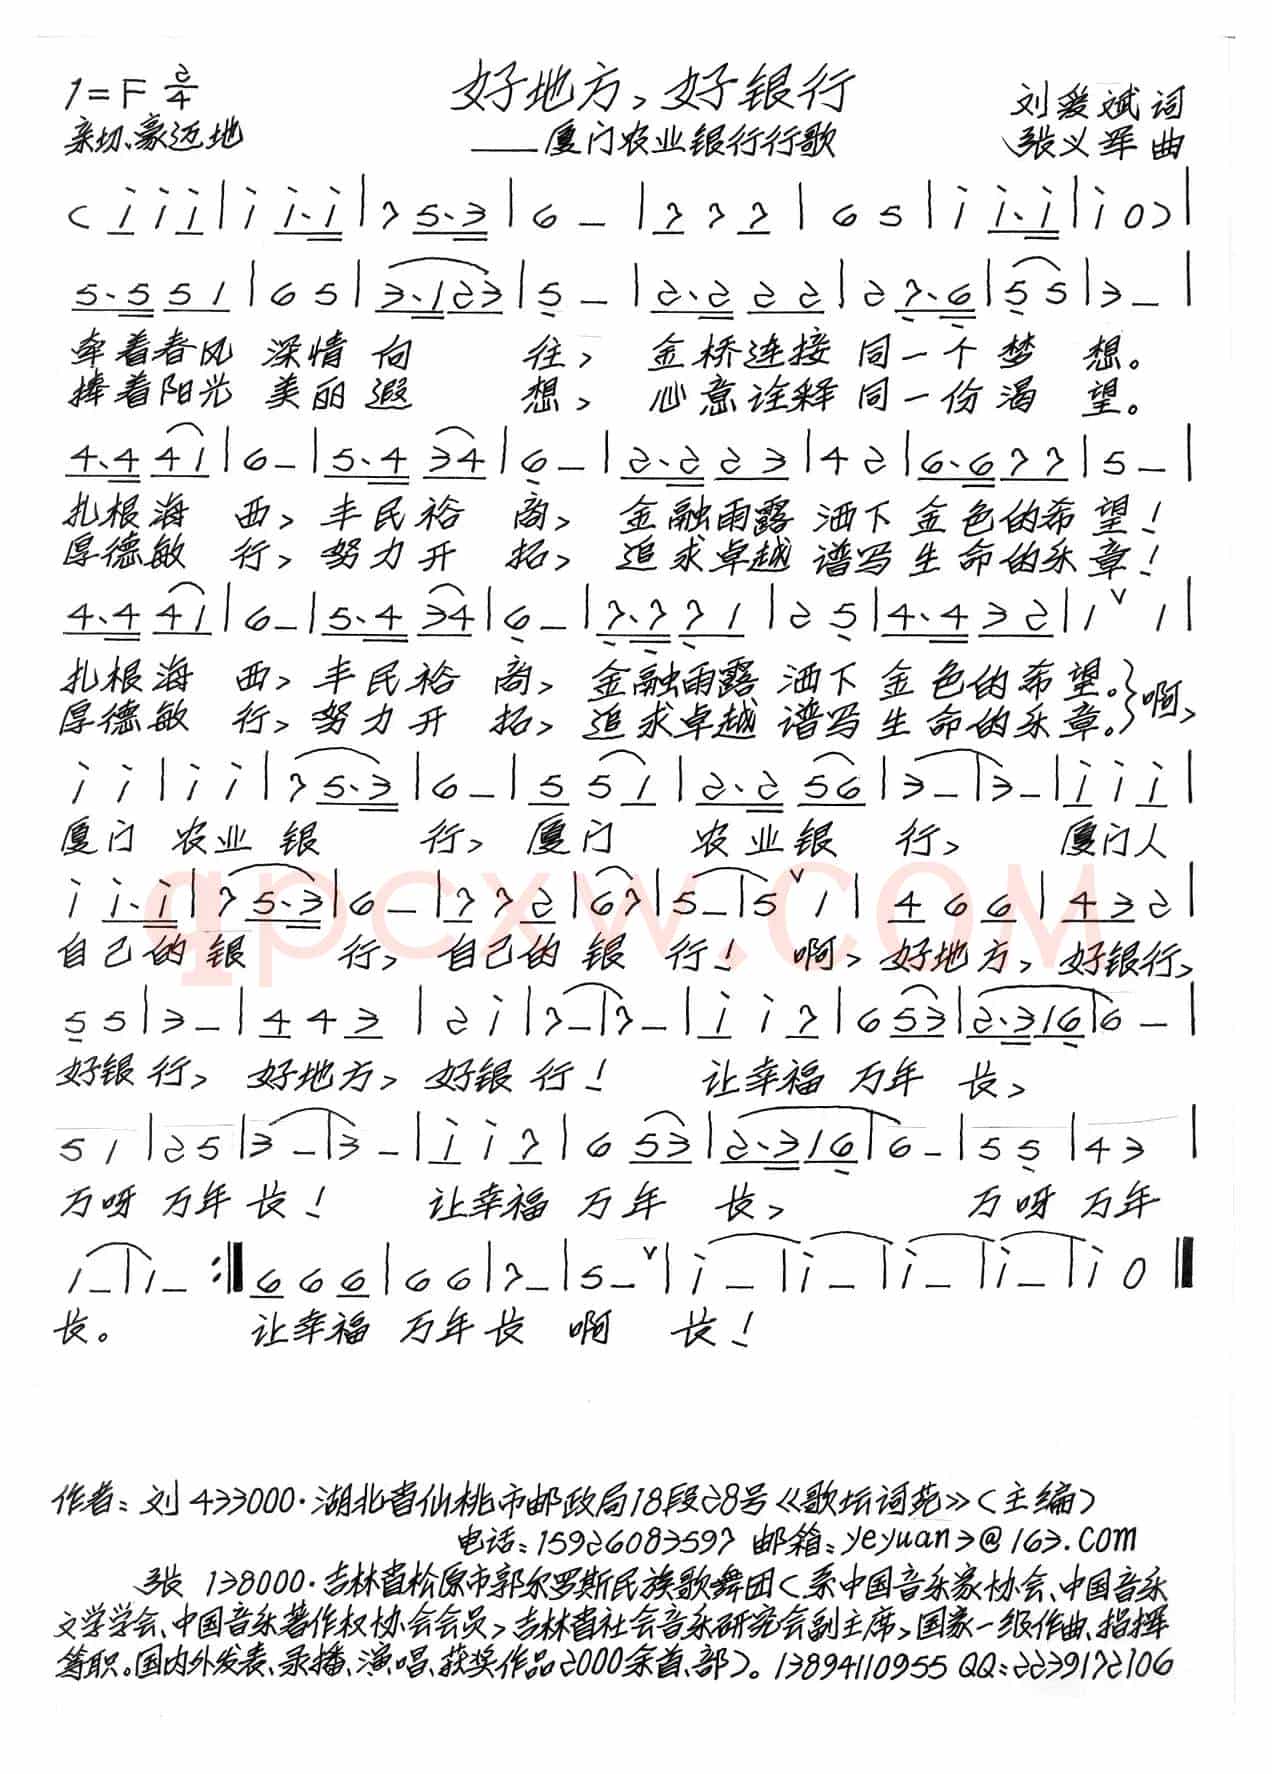 1=F 2/4
好地方，好银行
刘爱斌词
亲切、豪迈地
——厦门农业银行行歌
张义军曲
( i i i | i i·i | 7 5·3 | 6 - | 7 7 7 | 6 5 | i i·i | i 0 ) |
5·5 5 1 | 6 5 | 3·1 2 3 | 5 - | 2·2 2 2 | 2 7·6 | 5 5 | 3 - |
牵着春风 深情向 往， 金桥连接 同一个梦 想。
捧着阳光 美丽遐 想， 心意诠释 同一份渴 望。
4·4 4 1 | 6 - | 5·4 3 4 | 6 - | 2·2 2 3 | 4 2 | 6·6 7 7 | 5 - |
扎根海 西， 丰民裕 商， 金融雨露 洒下 金色的希望！
厚德敏 行， 努力开 拓， 追求卓越 谱写 生命的乐章！
4·4 4 1 | 6 - | 5·4 3 4 | 6 - | 7·7 7 1 | 2 5 | 4·4 3 2 | 1 ∨ 1 |
扎根海 西， 丰民裕 商， 金融雨露 洒下 金色的希望。} 啊，
厚德敏 行， 努力开 拓， 追求卓越 谱写 生命的乐章。}
i i | i i | 7 5·3 | 6 - | 5 5 1 | 2·2 5 6 | 3 - | 3 - | i i i |
厦门 农业 银 行， 厦门 农业银 行， 厦门人
i i·i | 7 5·3 | 6 - | 7 7 2 | 6 7 | 5 - | 5 ∨ 1 | 4 6 6 | 4 3 2 |
自己的 银 行， 自己的 银 行！ 啊， 好地方， 好银行，
qpcxw.COM
5 5 | 3 - | 4 4 3 | 2 i | 7 - | 7 - | i i 7 | 6 5 3 | 2·3 1 6 | 6 - |
好银 行， 好地方， 好银 行！ 让幸福 万年 长，
5 1 | 2 5 | 3 - | 3 - | i i 7 | 6 5 3 | 2·3 1 6 | 6 - | 5 5 | 4 3 |
万呀 万年 长！ 让幸福 万年 长， 万呀 万年
1 - | 1 - :‖ 6 6 6 | 6 6 | 7 - | 5 - ∨ | i - | i - | i - | i - | i 0 ‖
长。 让幸福 万年 长 啊 长！
作者：刘 433000·湖北省仙桃市邮政局18段28号《歌坛词苑》（主编）
电话：15926083597 邮箱：yeyuan3@163.com
张 138000·吉林省松原市郭尔罗斯民族歌舞团（系中国音乐家协会、中国音乐
文学学会、中国音乐著作权协会会员，吉林省社会音乐研究会副主席，国家一级作曲、指挥
等职。国内外发表、录播、演唱、获奖作品2000余首、部）。13894110955 QQ：2239172106